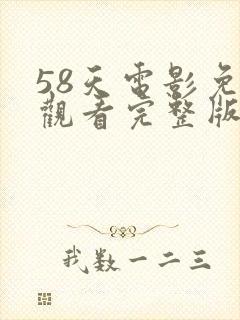 58天電影免
觀看完整版
我数一二三